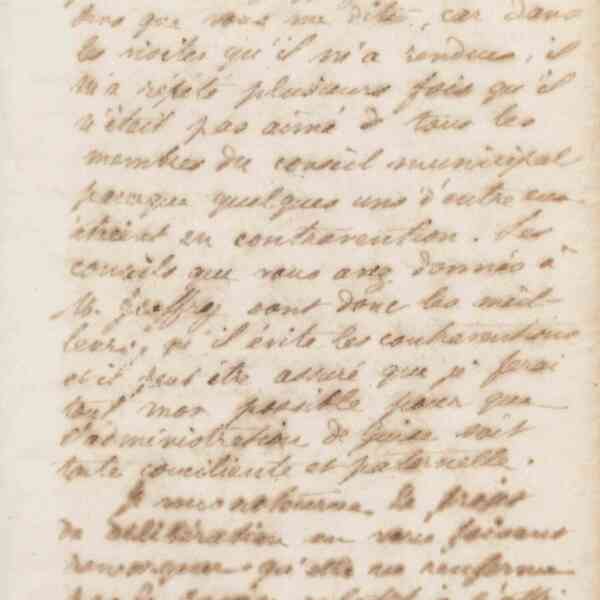 que vous me dites, car dans
les visites qu'il m'a rendues, il
m'a répété plusieurs fois qu'il
n'était pas aimé de tous les
membres du conseil municipal
parceque quelques uns d'entre eux
étaient en contravention. Les
conseils que vous avez donnés à
M. sont donc les meil-
leurs; qu'il évite les contraventions
et il peut être assuré que je ferai
tout mon possible pour que
l'administration de Guise soit
toute conciliante et paternelle.
Je vous retourne le projet
de délibération en vous faisant
remarquer qu'elle ne renferme